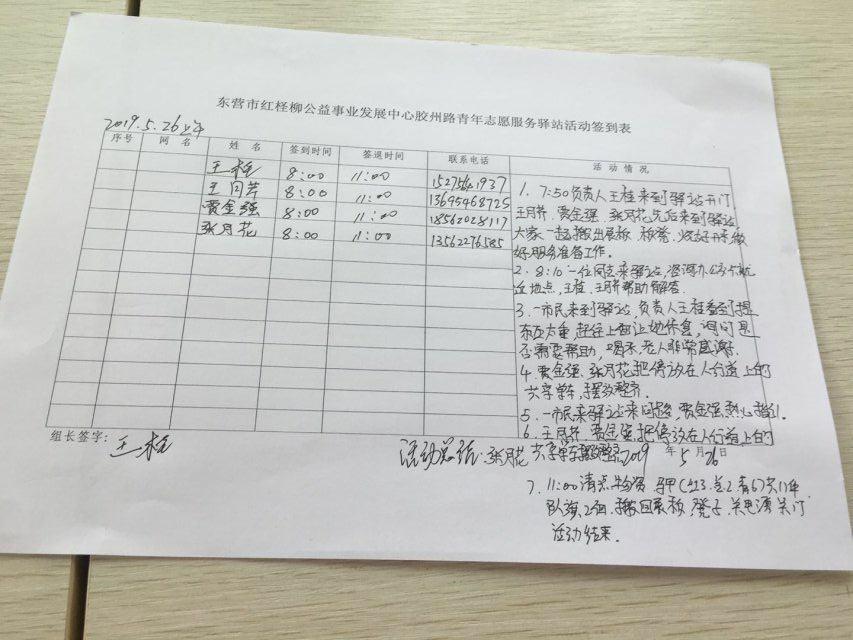 东营市红柽柳公益事业发展中心胶州路青年志愿服务驿站活动签到表
2019.5.26上午
序号 网名 姓名 签到时间 签退时间 联系电话 活动情况
王柽 8:00 11:00
王月芹 8:00 11:00 13695468725
费金强 8:00 11:00 18562028117
张月花 8:00 11:00 13562276585
1. 7:50负责人王柽来到驿站开门,
王月芹、费金强、张月花先后来到驿站,
大家一起搬出展板、板凳、
好服务准备工作。
2. 8:10一位同志来驿站,咨询办公交卡就
近地点,王柽、王月芹帮助解答。
3. 一市民来到驿站,负责人王柽看到提
东西太重,赶往上前让她休息,询问是
否需要帮助,喝水,老人非常感谢。
4. 费金强、张月花把停放在人行道上的
共享单车,摆放整齐。
5. 一市民来驿站来问路,费金强热心指引。
6. 王月芹、费金强把停放在人行道上的
共享单车
组长签字: 王柽
活动总结:张月花
2019 年 5 月 26 日
7. 11:00清点物资,马甲(红3.兰2.青6)共11件
队旗2面、搬回展板、凳子、关电源关门
活动结束.